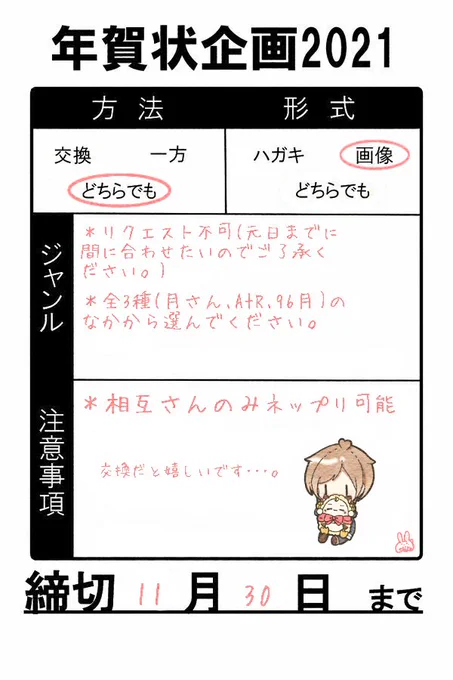 年賀状企画2021
方法
形式
交換 一方
どちらでも
ハガキ 画像
どちらでも
ジャンル
*リクエスト不可(元日までに
間に合わせたいのでご了承く
ださい。)
*全3種(月さん、A+R、96月)の
なかから選んでください。
注意事項
*相互さんのみネップリ可能
交換だと嬉しいです・・・。
締切 11月30日 まで